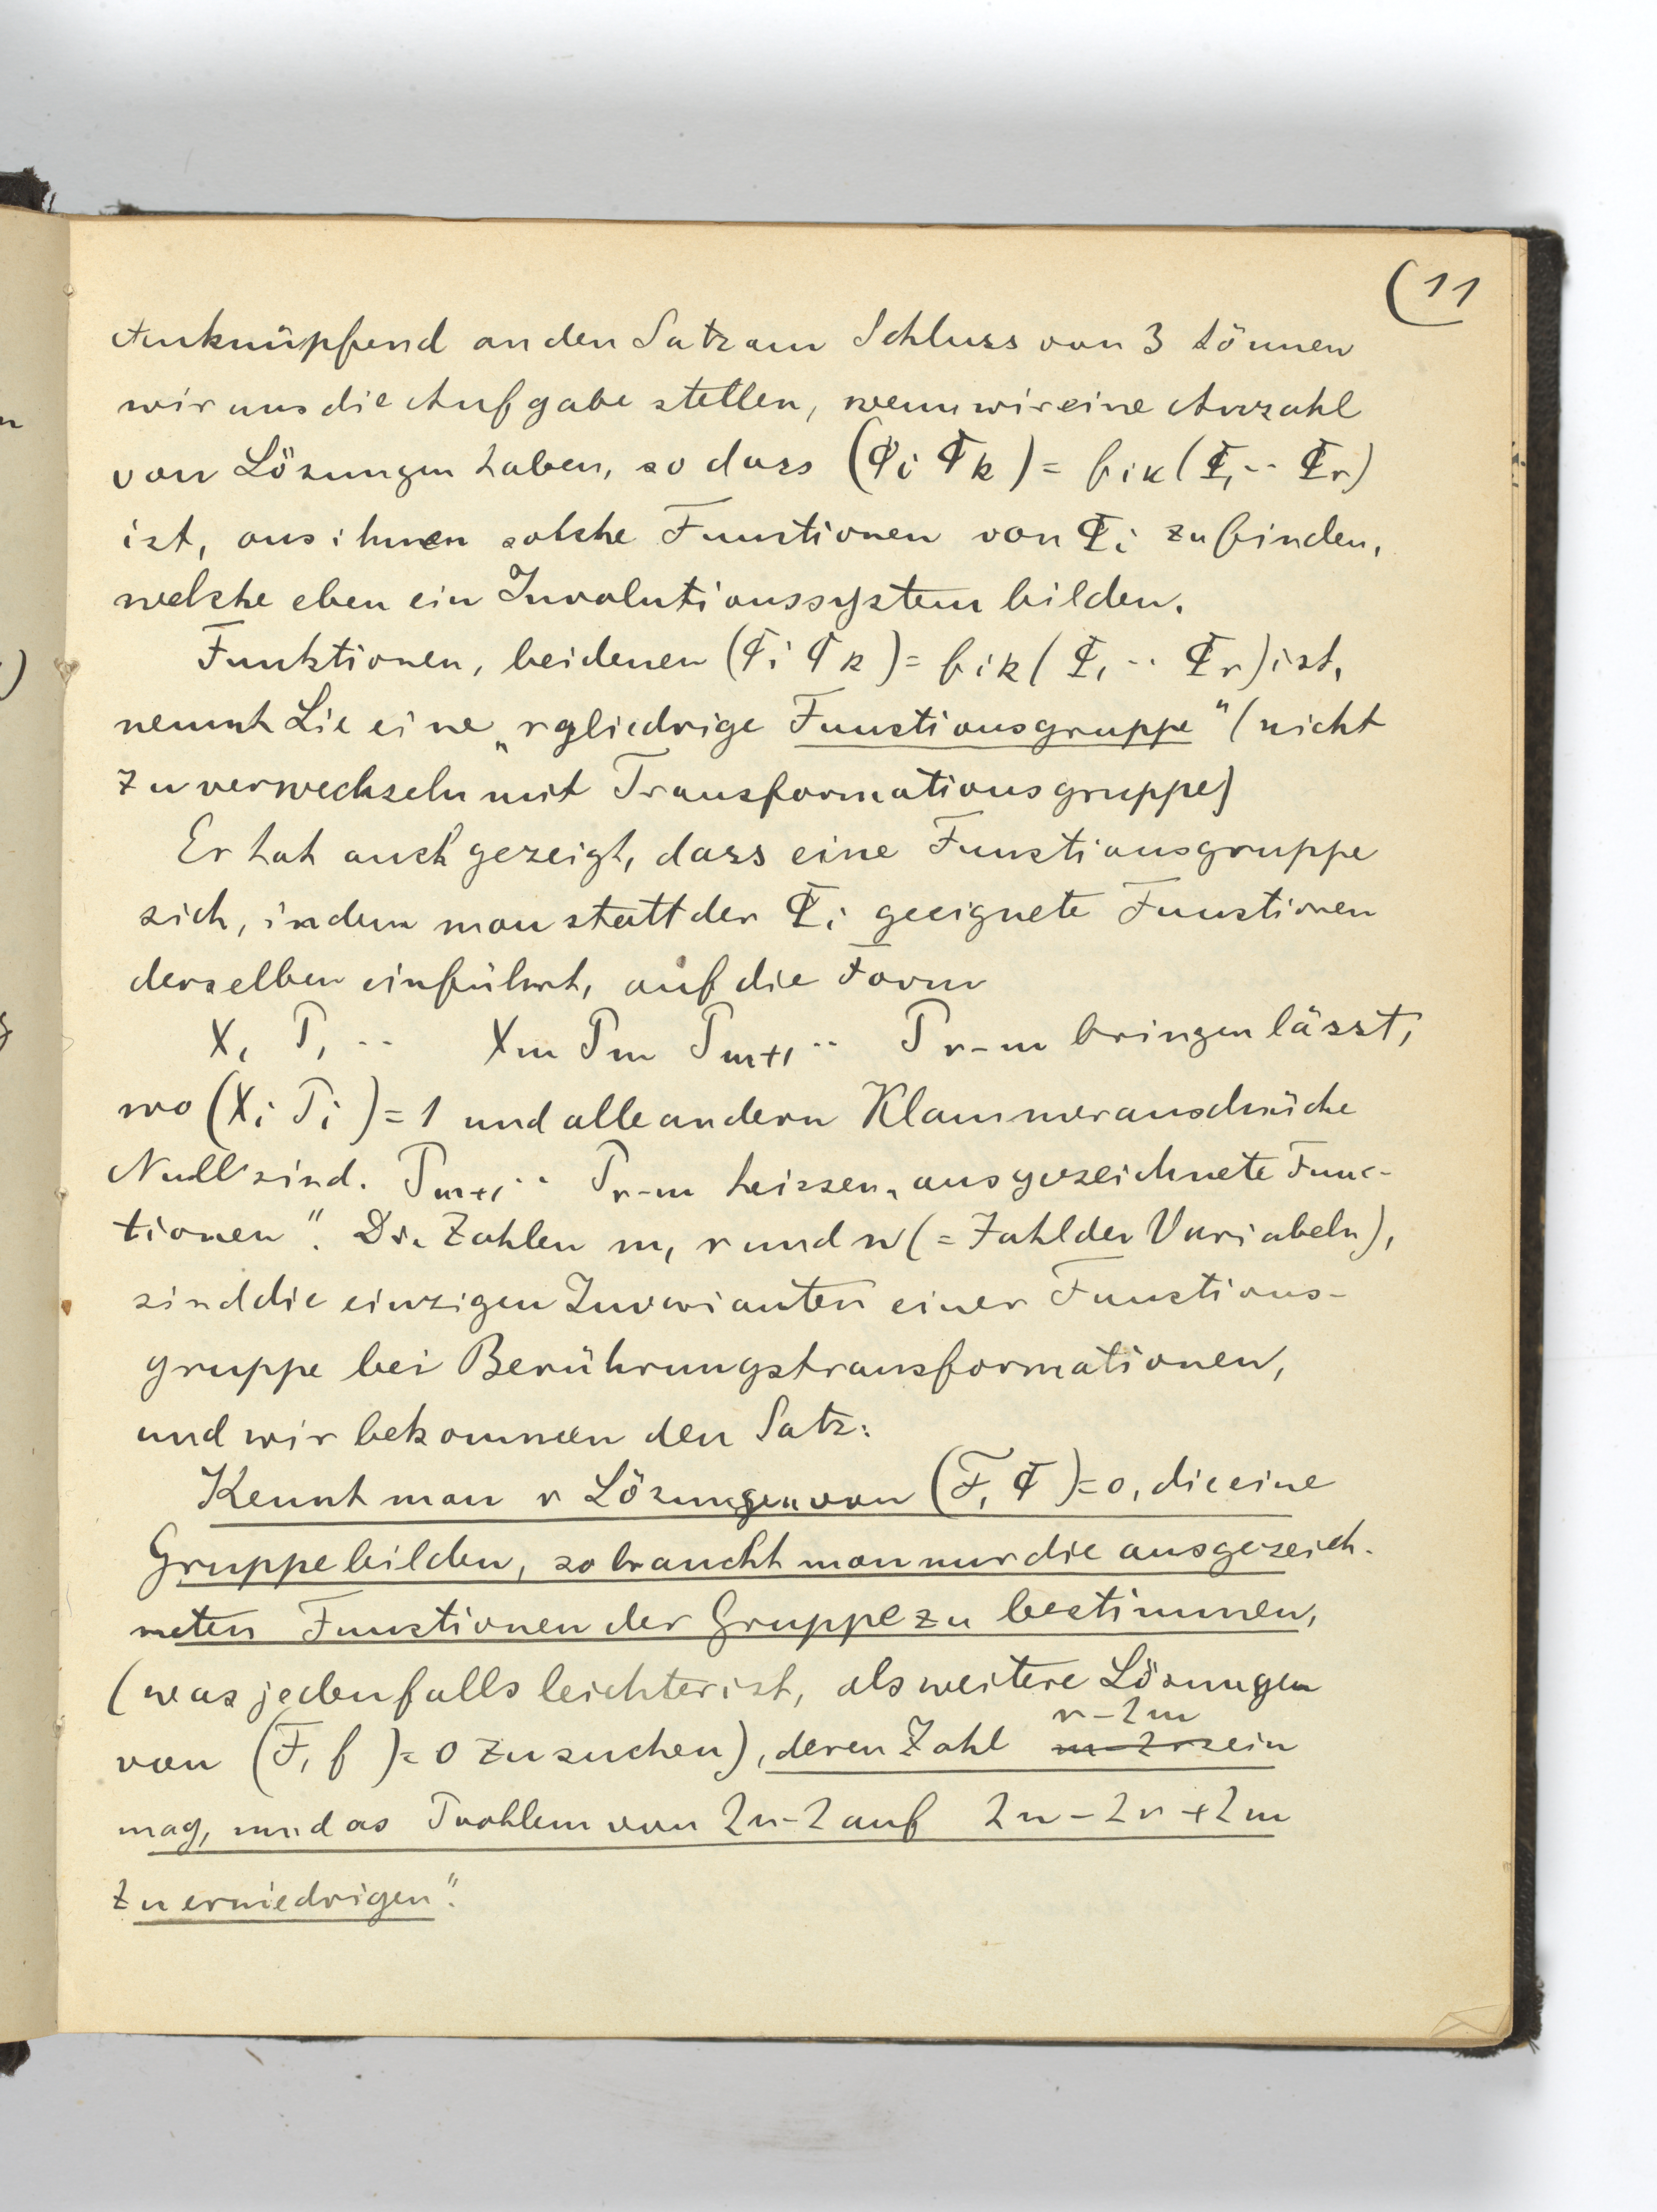 (11
Anknüpfend an den Satz am Schluss von 3 können
wir uns die Aufgabe stellen, wenn wir eine Anzahl
von Lösungen haben, so dass (Φi Φk) = fik(Φ1 ·· Φr)
ist, aus ihnen solche Functionen von Φi zu finden,
welche eben ein Involutionssystem bilden.
Funktionen, bei denen (Φi Φk) = fik(Φ1 ·· Φr) ist,
nennt Lie eine „rgliedrige Functionsgruppe" (nicht
zu verwechseln mit Transformationsgruppe)
Er hat auch gezeigt, dass eine Functionsgruppe
sich, indem man statt der Φi geeignete Functionen
derselben einführt, auf die Form
X1 P1 ·· Xm Pm Pm+1 ·· Pr-m bringen lässt,
wo (Xi Pi) = 1 und alle andern Klammerausdrücke
Null sind. Pm+1 ·· Pr-m heissen „ausgezeichnete Func-
tionen". Die Zahlen m, r und n (= Zahl der Variabeln),
sind die einzigen Invarianten einer Functions-
gruppe bei Berührungstransformationen,
und wir bekommen den Satz:
Kennt man r Lösungen von (F, Φ) = 0, die eine
Gruppe bilden, so braucht man nur die ausgezeich-
neten Functionen der Gruppe zu bestimmen,
(was jedenfalls leichter ist, als weitere Lösungen
r-2m
von (F, f) = 0 zu suchen), deren Zahl m-2r sein
mag, um das Problem von 2n-2 auf 2n-2r+2m
zu erniedrigen".